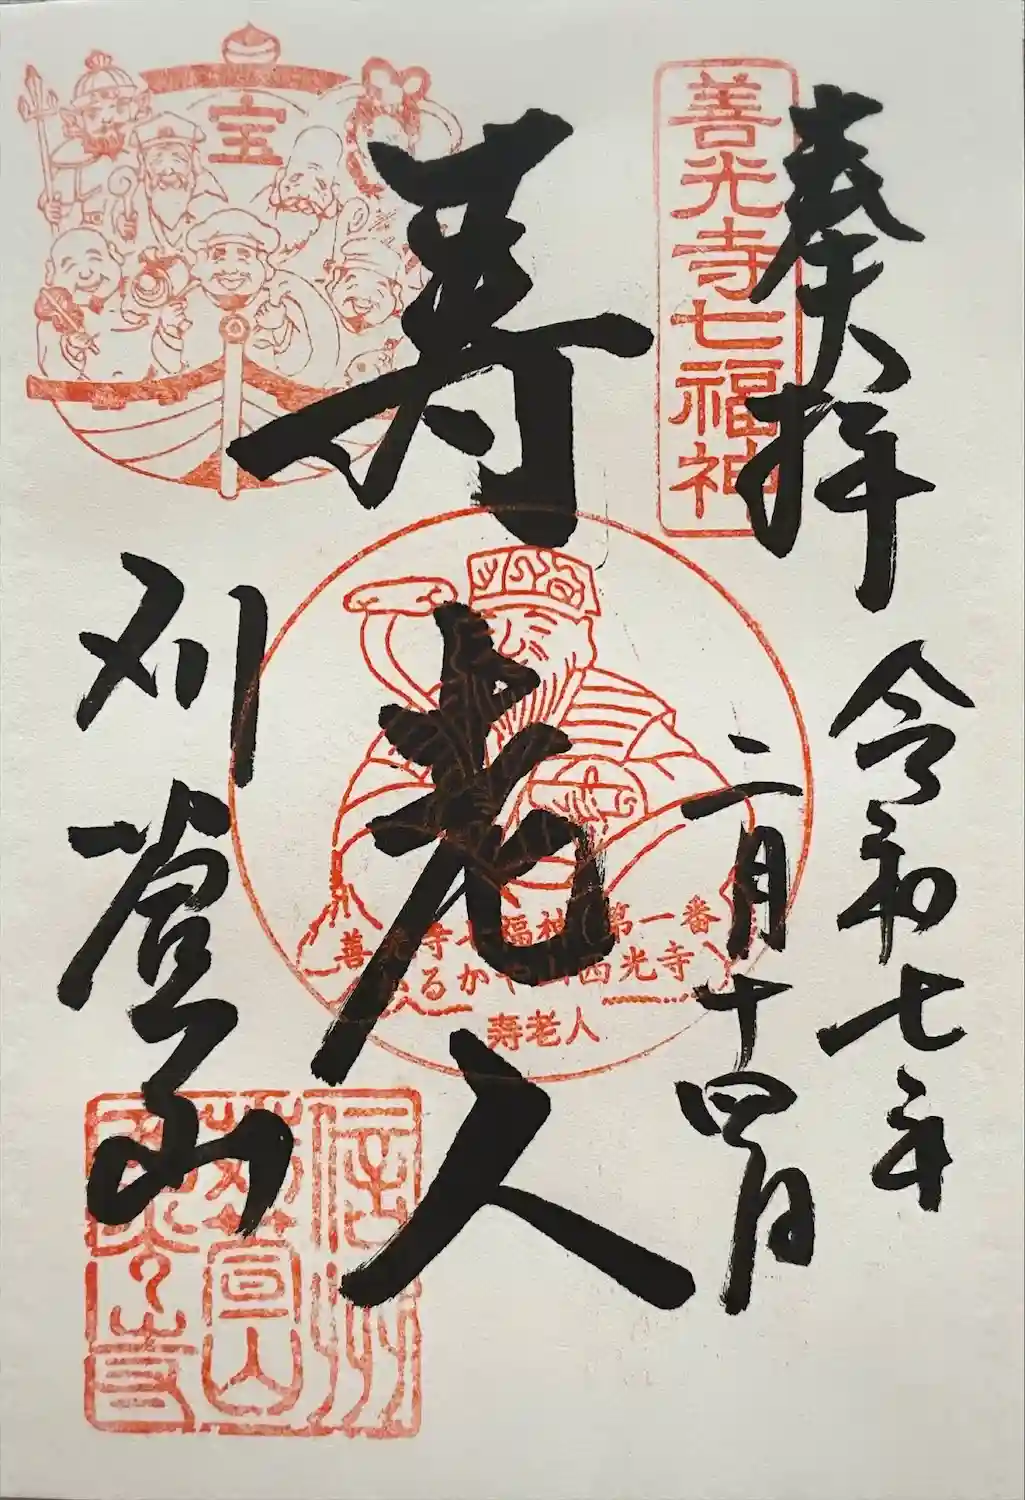 奉拝
令和七年
二月十四日
善光寺七福神
寿老人
刈萱山
宝
善光寺七福神 第一番
かるかや山西光寺
寿老人
信州
苅萱山
西光寺